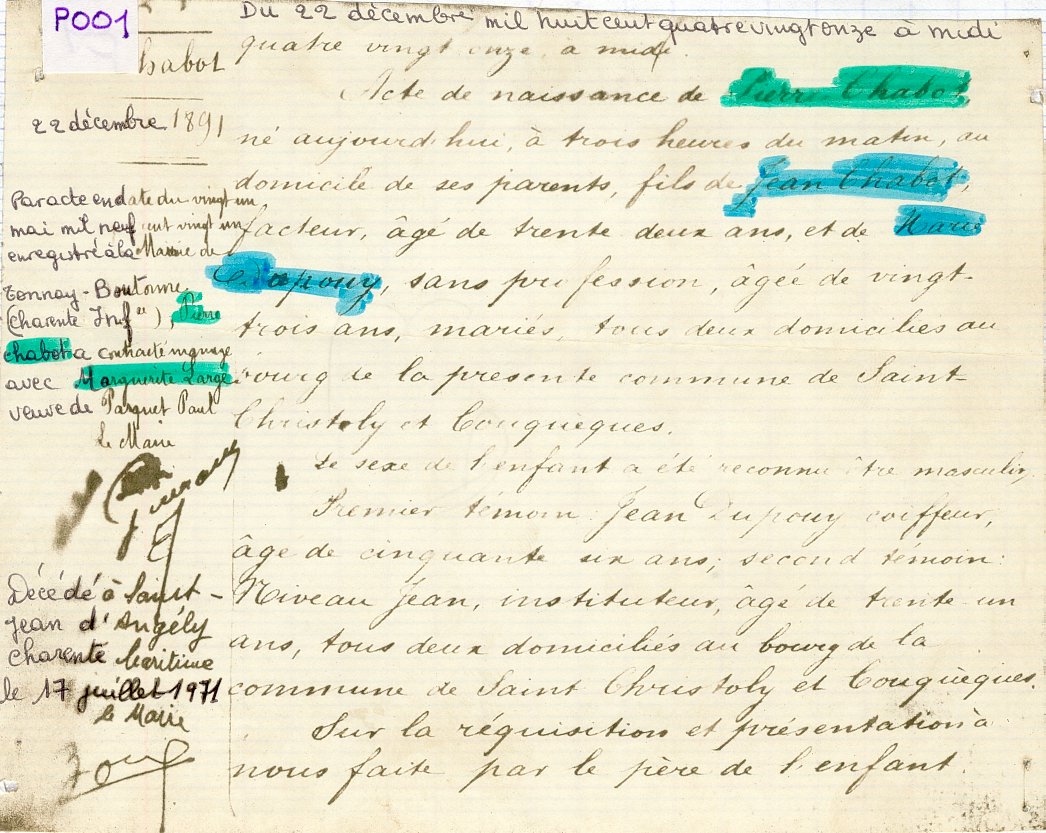 P001
Chabot
22 décembre 1891
Par acte en date du vingt un
mai mil neuf cent vingt un
enregistré à la Mairie de
Tonnay-Boutonne
(Charente Infre), Pierre
Chabot a contracté mariage
avec Marguerite Large
veuve de Parquet Paul
Le Maire
Décédé à Saint-
Jean d'Angély
Charente Maritime
le 17 juillet 1971
Le Maire
Du 22 décembre mil huit cent quatre vingt onze à midi
quatre vingt onze, à midi.
Acte de naissance de Pierre Chabot,
né aujourd'hui, à trois heures du matin, au
domicile de ses parents, fils de Jean Chabot,
facteur, âgé de trente deux ans, et de Marie
sans profession, âgée de vingt-
trois ans, mariés, tous deux domiciliés au
bourg de la présente commune de Saint-
Christoly et Couquèques.
Le sexe de l'enfant a été reconnu être masculin,
Premier témoin: Jean Dupouy coiffeur,
âgé de cinquante six ans; second témoin:
Niveau Jean, instituteur, âgé de trente-un
ans, tous deux domiciliés au bourg de la
commune de Saint Christoly et Couquèques.
Sur la réquisition et présentation à
nous faite par le père de l'enfant.